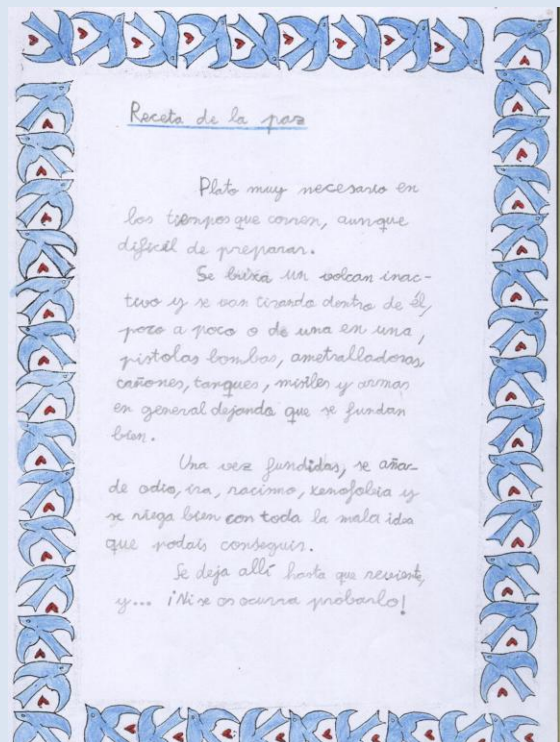 Receta de la paz
Plato muy necesario en
los tiempos que corren, aunque
difícil de preparar.
Se busca un volcan inac-
tivo y se van tirando dentro de él,
poco a poco o de una en una,
pistolas bombas, ametralladoras,
cañones, tanques, misiles y armas
en general dejando que se fundan
bien.
Una vez fundidas, se aña-
de odio, ira, racismo, xenofobia y
se riega bien con toda la mala idea
que podais conseguir.
Se deja allí hasta que reviente,
y... ¡Ni se os ocurra probarlo!